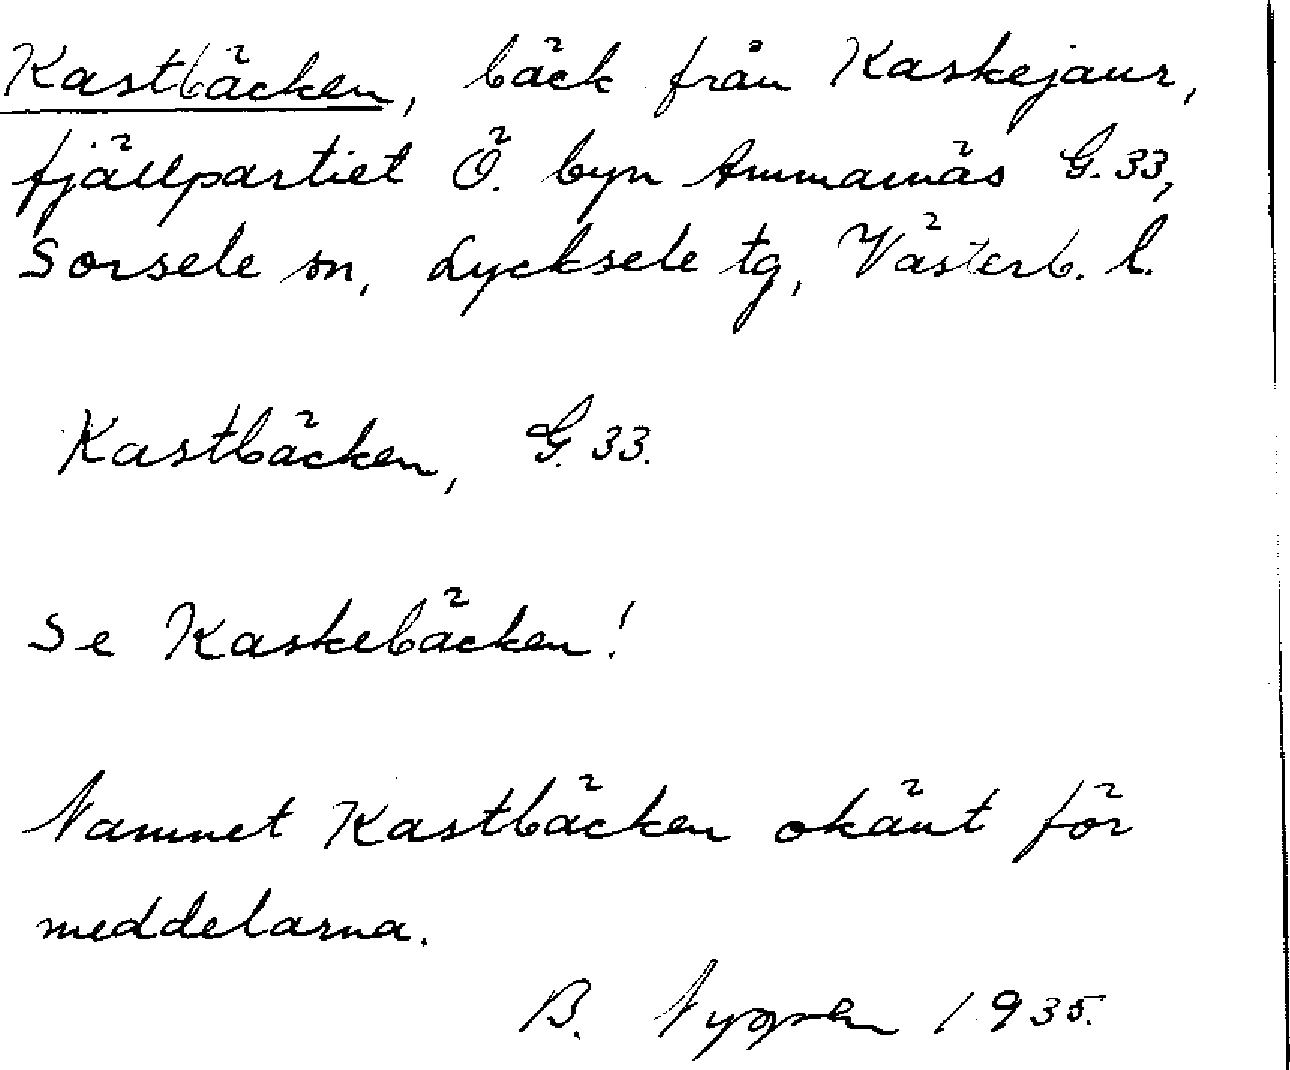 Kastbäcken, bäck från Kaskejaur,
fjällpartiet Ö. byn Ammarnäs G. 33,
Sorsele sn, Lycksele tg, Västerb. l.
Kastbäcken, G. 33.
Se Kaskebäcken!
Namnet Kastbäcken okänt för
meddelarna.
B. 1935.